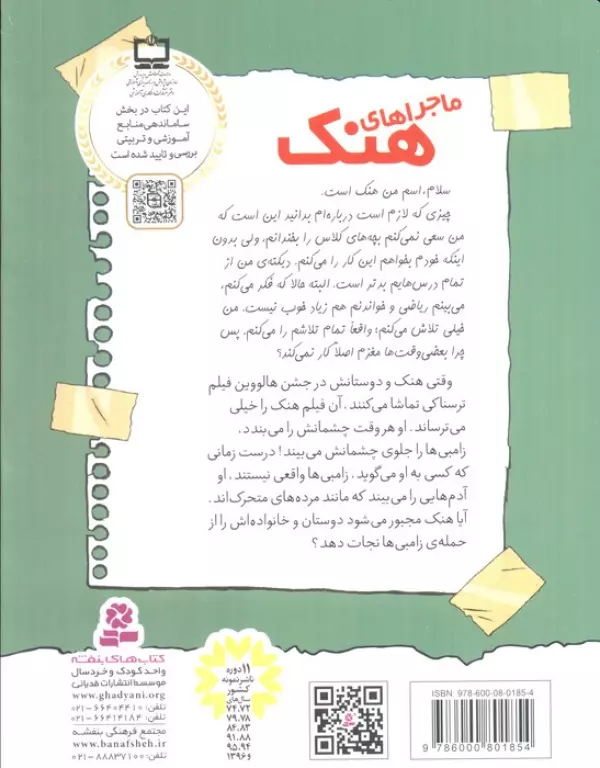 این کتاب در بخش
ساماندهی منابع
آموزشی و تربیتی
بررسی و تایید شده است
ماجراهای
هنک
سلام، اسم من هنک است.
چیزی که لازم است درباره‌ام بدانید این است که
من سعی نمی‌کنم بچه‌های کلاس را بخندانم، ولی بدون
اینکه خودم بخواهم این کار را می‌کنم. دیکته‌ی من از
تمام درس‌هایم بدتر است. البته حالا که فکر می‌کنم،
می‌بینم ریاضی و خواندنم هم زیاد خوب نیست. من
خیلی تلاش می‌کنم؛ واقعاً تمام تلاشم را می‌کنم. پس
چرا بعضی وقت‌ها مغزم اصلاً کار نمی‌کند؟
وقتی هنک و دوستانش در جشن هالووین فیلم
ترسناکی تماشا می‌کنند، آن فیلم هنک را خیلی
می‌ترساند. او هر وقت چشمانش را می‌بندد،
زامبی‌ها را جلوی چشمانش می‌بیند! درست زمانی
که کسی به او می‌گوید، زامبی‌ها واقعی نیستند، او
آدم‌هایی را می‌بیند که مانند مرده‌های متحرک‌اند.
آیا هنک مجبور می‌شود دوستان و خانواده‌اش را از
حمله‌ی زامبی‌ها نجات دهد؟
کتاب‌های بنفشه
واحد کودک و خردسال
موسسه انتشارات قدیانی
www.ghadyani.org
تلفن: ۶۶۴۰۴۴۱۰-۰۲۱
تلفن: ۶۶۴۱۴۱۸۴-۰۲۱
مجتمع فرهنگی بنفشه
www.banafsheh.ir
تلفن: ۸۸۸۳۷۱۰۰-۰۲۱
۱۱ دوره
ناشر نمونه
کشور
سال‌های
۷۴،۷۲
۷۹،۷۸
۸۴،۸۳
۹۱،۸۸
۹۵،۹۴
و ۱۳۹۶
ISBN 978-600-08-0185-4
9 786000 801854